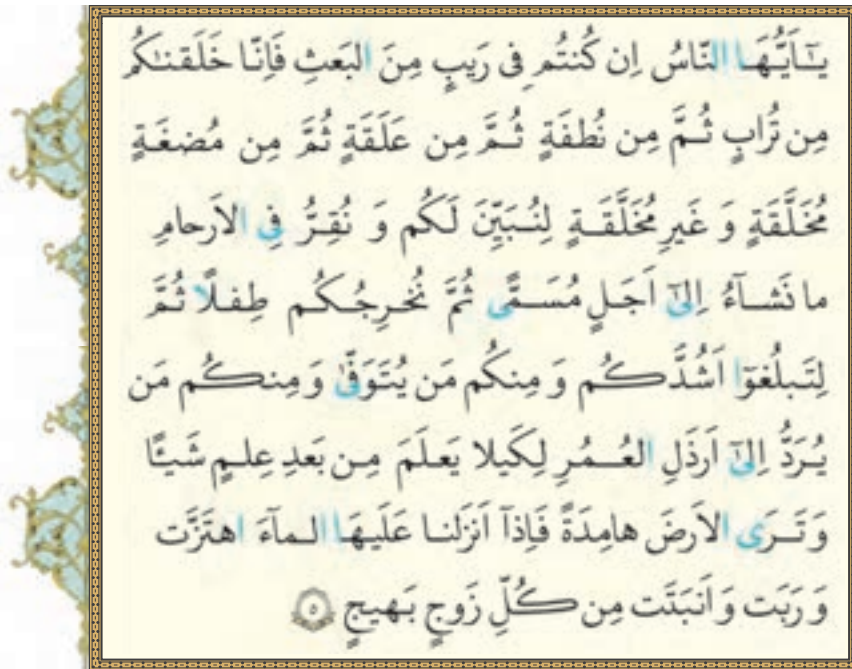 يٰٓاَيُّهَا النّاسُ اِن كُنتُم فى رَيبٍ مِنَ البَعثِ فَاِنّا خَلَقنٰكُم
مِن تُرابٍ ثُمَّ مِن نُطفَةٍ ثُمَّ مِن عَلَقَةٍ ثُمَّ مِن مُضغَةٍ
مُخَلَّقَةٍ وَ غَيرِ مُخَلَّقَةٍ لِنُبَيِّنَ لَكُم وَ نُقِرُّ فِى الاَرحامِ
ما نَشآءُ اِلىٰٓ اَجَلٍ مُسَمًّى ثُمَّ نُخرِجُكُم طِفلًا ثُمَّ
لِتَبلُغوٓا اَشُدَّكُم وَ مِنكُم مَن يُتَوَفّىٰ وَ مِنكُم مَن
يُرَدُّ اِلىٰٓ اَرذَلِ العُمُرِ لِكَيلا يَعلَمَ مِن بَعدِ عِلمٍ شَيـًٔا
وَ تَرَى الاَرضَ هامِدَةً فَاِذآ اَنزَلنا عَلَيهَا المآءَ اهتَزَّت
وَ رَبَت وَ اَنبَتَت مِن كُلِّ زَوجٍ بَهيجٍ ٥